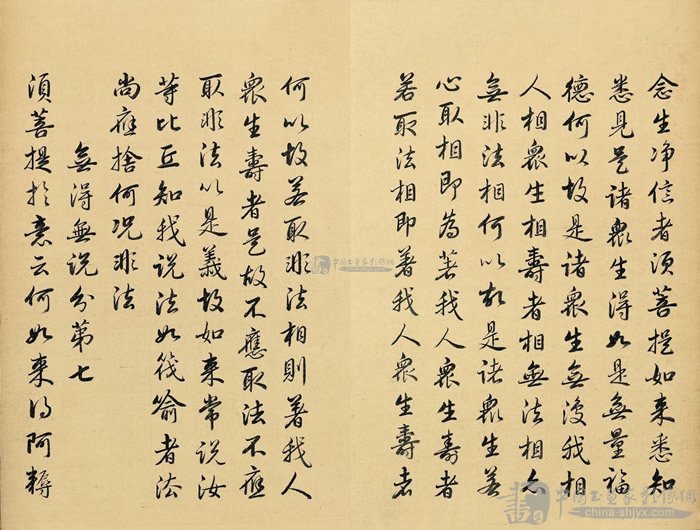 念生净信者須菩提如来悉知
悉見是諸衆生得如是無量福
德何以故是諸衆生無復我相
人相衆生相壽者相無法相亦
無非法相何以故是諸衆生若
心取相即為著我人衆生壽者
若取法相即著我人衆生壽者
何以故若取非法相則著我人
衆生壽者是故不應取法不應
取非法以是義故如来常説汝
等比丘知我説法如筏喻者法
尚應捨何况非法
無得無説分第七
須菩提於意云何如来得阿耨
china-shjyx.com